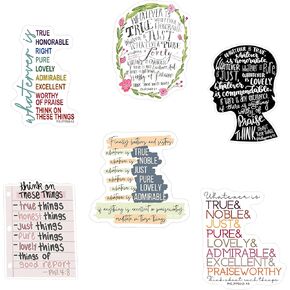 whatever is
TRUE
HONORABLE
RIGHT
PURE
LOVELY
ADMIRABLE
EXCELLENT
WORTHY
OF PRAISE
THINK ON
THESE THINGS
WHATEVER IS
TRUE
WHATEVER IS
JUST
WHATEVER IS
PURE
WHATEVER IS
lovely
WHATEVER IS TRUE
WHATEVER IS
JUST
WHATEVER IS
WHATEVER IS
PURE
WHATEVER IS
commendable
THINK
ABOUT
THESE
THINGS
think on
These Things:
- true things
- honest things
- just things
- pure things
- lovely things
- things of
good report
- Phil. 4:8
Finally brothers and sisters
whatever is TRUE
whatever is NOBLE
whatever is JUST
whatever is PURE
whatever is LOVELY
whatever is ADMIRABLE
if anything is excellent or praiseworthy
meditate on these things
Whatever is
TRUE&
NOBLE&
JUST&
PURE&
LOVELY&
ADMIRABLE&
EXCELLENT&
PRAISEWORTHY
Think about such things